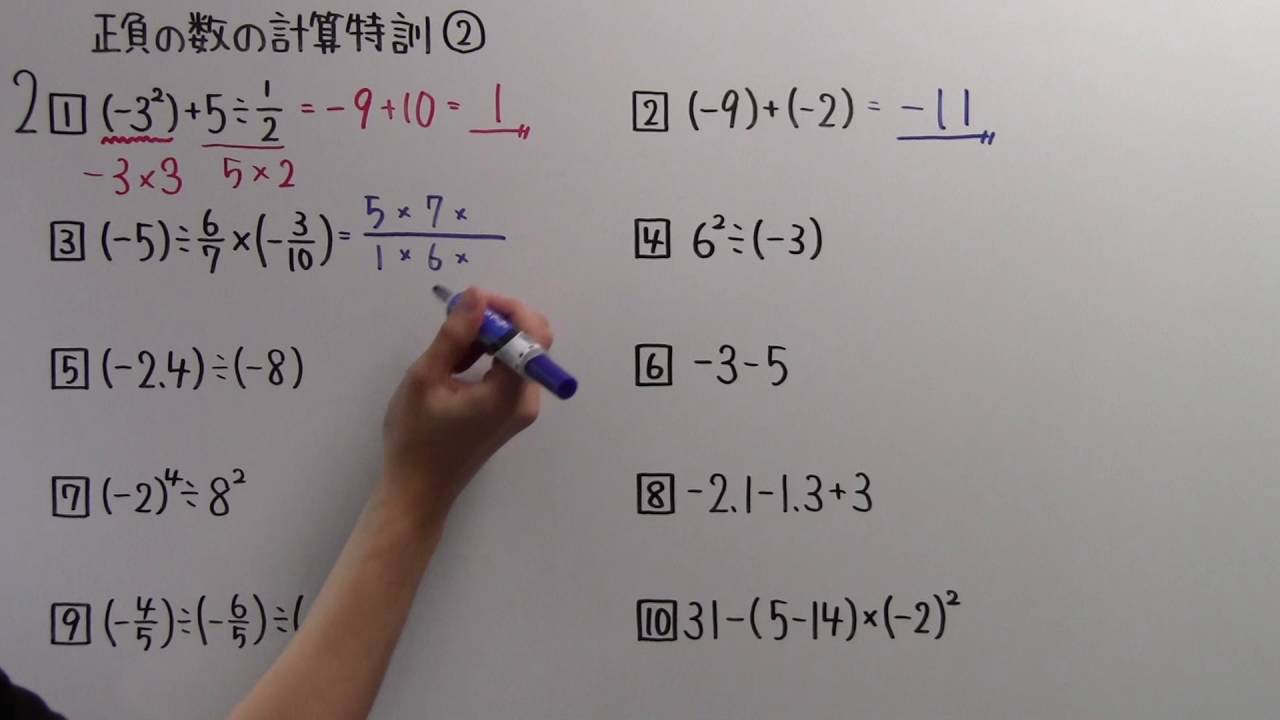 正負の数の計算特訓②
2
1 (-3²)+5÷1/2 = -9+10 = 1
-3×3 5×2
2 (-9)+(-2) = -11
3 (-5)÷6/7×(-3/10) = 5×7×/1×6×
4 6²÷(-3)
5 (-2.4)÷(-8)
6 -3-5
7 (-2)⁴÷8²
8 -2.1-1.3+3
9 (-4/5)÷(-6/5)÷(
10 31-(5-14)×(-2)²